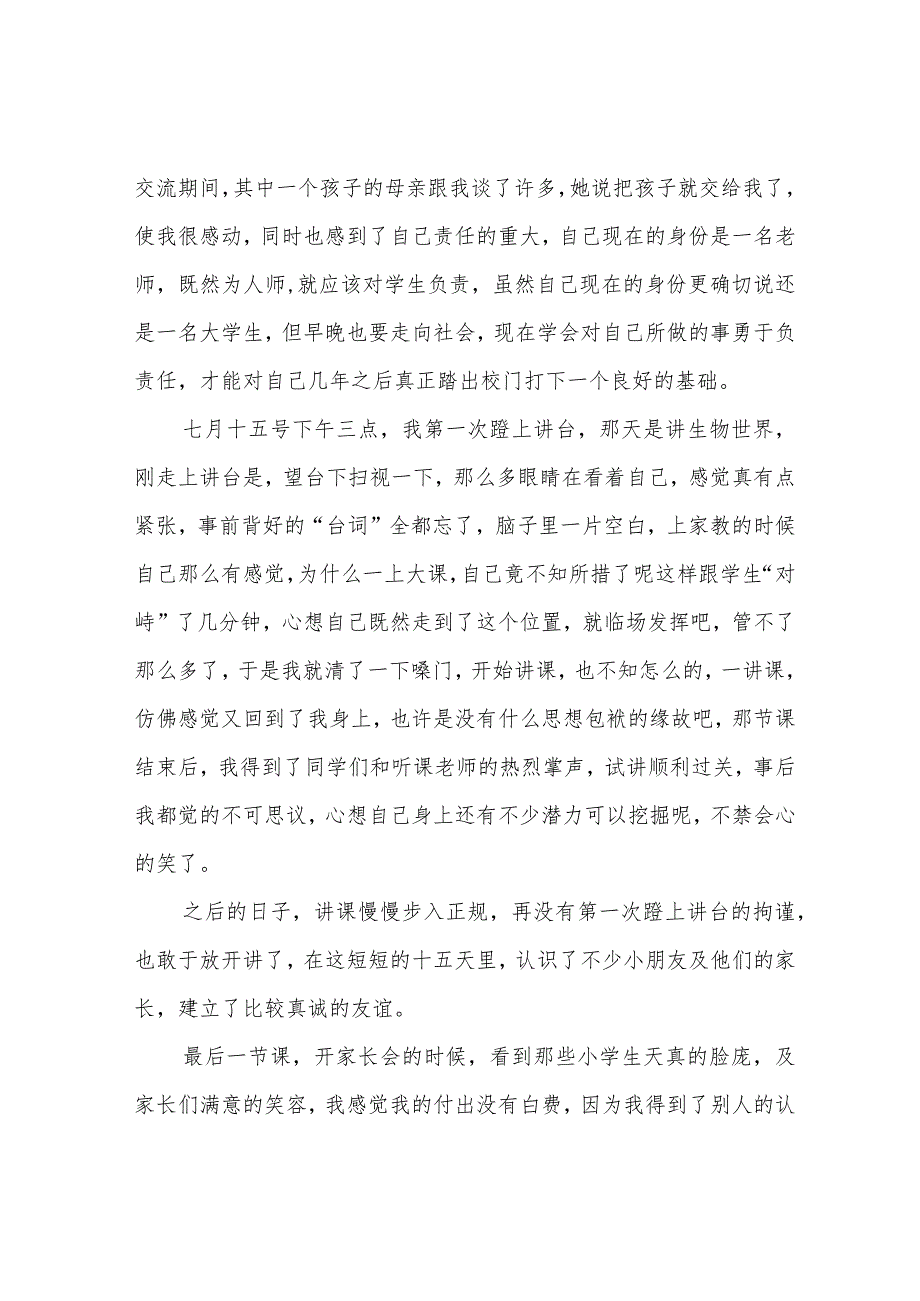 交流期间,其中一个孩子的母亲跟我谈了许多,她说把孩子就交给我了,
使我很感动，同时也感到了自己责任的重大，自己现在的身份是一名老
师，既然为人师,就应该对学生负责，虽然自己现在的身份更确切说还
是一名大学生，但早晚也要走向社会，现在学会对自己所做的事勇于负
责任，才能对自己几年之后真正踏出校门打下一个良好的基础。
七月十五号下午三点，我第一次蹬上讲台，那天是讲生物世界，
刚走上讲台是，望台下扫视一下，那么多眼睛在看着自己，感觉真有点
紧张，事前背好的“台词”全都忘了，脑子里一片空白，上家教的时候
自己那么有感觉,为什么一上大课,自己竟不知所措了呢这样跟学生“对
峙”了几分钟，心想自己既然走到了这个位置，就临场发挥吧，管不了
那么多了，于是我就清了一下嗓门，开始讲课，也不知怎么的，一讲课，
仿佛感觉又回到了我身上，也许是没有什么思想包袱的缘故吧，那节课
结束后，我得到了同学们和听课老师的热烈掌声，试讲顺利过关，事后
我都觉的不可思议，心想自己身上还有不少潜力可以挖掘呢，不禁会心
的笑了。
之后的日子，讲课慢慢步入正规，再没有第一次蹬上讲台的拘谨，
也敢于放开讲了，在这短短的十五天里，认识了不少小朋友及他们的家
长，建立了比较真诚的友谊。
最后一节课，开家长会的时候，看到那些小学生天真的脸庞，及
家长们满意的笑容，我感觉我的付出没有白费，因为我得到了别人的认